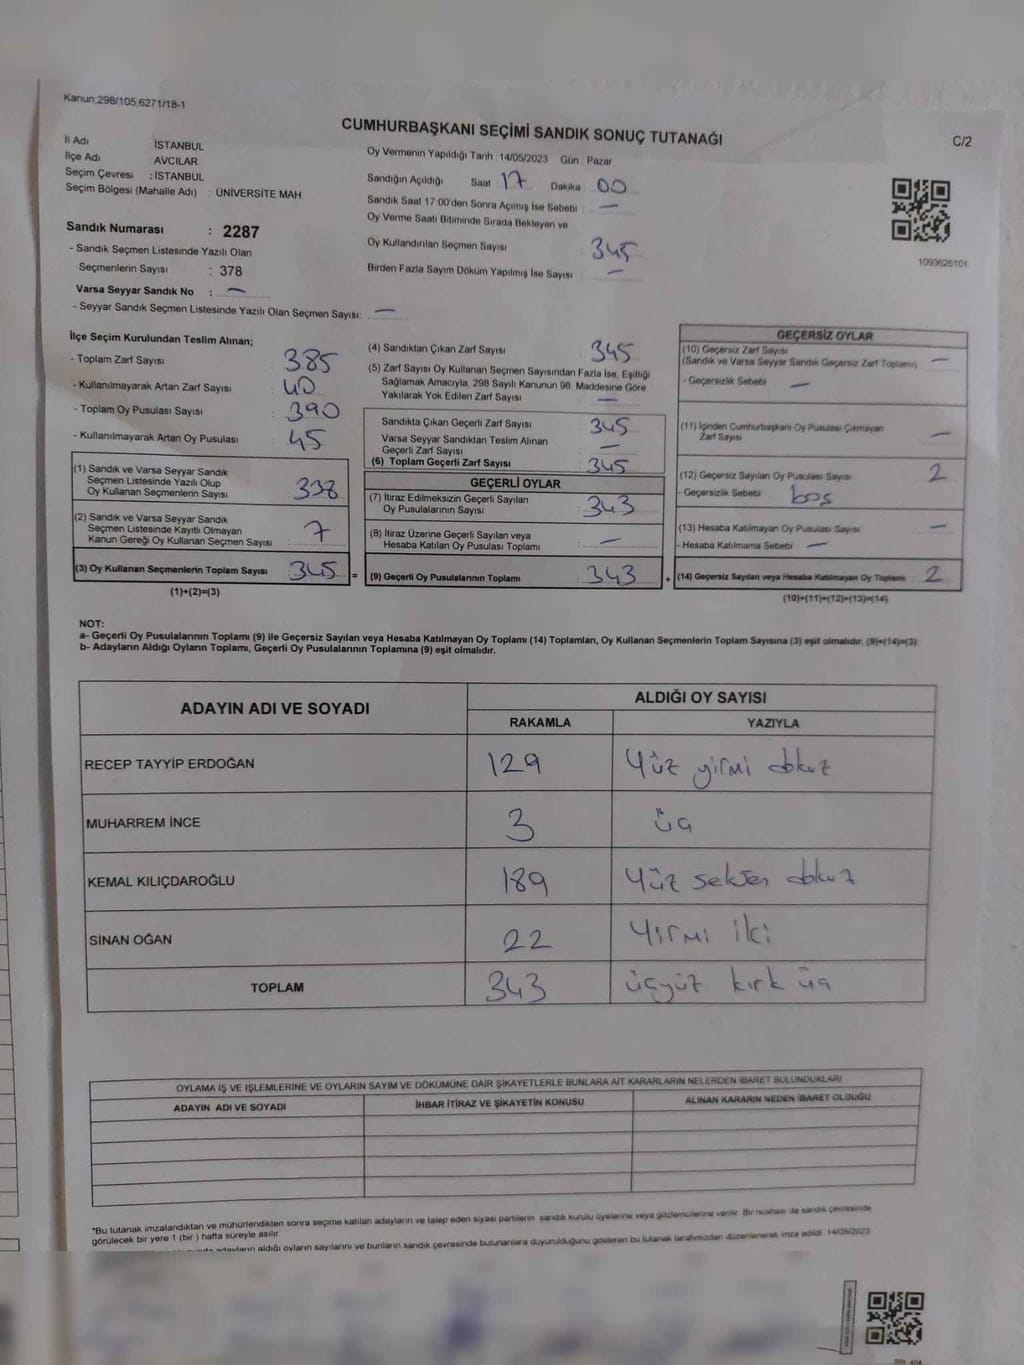 Kanun:298/105,6271/18-1
CUMHURBAŞKANI SEÇİMİ SANDIK SONUÇ TUTANAĞI
C/2
İl Adı İSTANBUL
İlçe Adı AVCILAR
Seçim Çevresi : İSTANBUL
Seçim Bölgesi (Mahalle Adı) : ÜNİVERSİTE MAH
Sandık Numarası : 2287
- Sandık Seçmen Listesinde Yazılı Olan
Seçmenlerin Sayısı : 378
Varsa Seyyar Sandık No : —
- Seyyar Sandık Seçmen Listesinde Yazılı Olan Seçmen Sayısı: —
Oy Vermenin Yapıldığı Tarih :14/05/2023 Gün : Pazar
Sandığın Açıldığı Saat 17 Dakika 00
Sandık Saat 17.00'den Sonra Açımış İse Sebebi : —
Oy Verme Saati Bitiminde Sırada Bekleyen ve
Oy Kullandırılan Seçmen Sayısı 345
Birden Fazla Sayım Döküm Yapılmış İse Sayısı : —
1093626101
İlçe Seçim Kurulundan Teslim Alınan;
- Toplam Zarf Sayısı 385
- Kullanılmayarak Artan Zarf Sayısı : 40
- Toplam Oy Pusulası Sayısı : 390
- Kullanılmayarak Artan Oy Pusulası : 45
(1) Sandık ve Varsa Seyyar Sandık
Seçmen Listesinde Yazılı Olup
Oy Kullanan Seçmenlerin Sayısı : 338
(2) Sandık ve Varsa Seyyar Sandık
Seçmen Listesinde Kayıtlı Olmayan
Kanun Gereği Oy Kullanan Seçmen Sayısı : 7
(3) Oy Kullanan Seçmenlerin Toplam Sayısı : 345 =
(1)+(2)=(3)
(4) Sandıktan Çıkan Zarf Sayısı : 345
(5) Zarf Sayısı Oy Kullanan Seçmen Sayısından Fazla İse, Eşitliği
Sağlamak Amacıyla, 298 Sayılı Kanunun 98. Maddesine Göre
Yakılarak Yok Edilen Zarf Sayısı : —
Sandıkta Çıkan Geçerli Zarf Sayısı : 345
Varsa Seyyar Sandıktan Teslim Alınan
Geçerli Zarf Sayısı : —
(6) Toplam Geçerli Zarf Sayısı : 345
GEÇERLİ OYLAR
(7) İtiraz Edilmeksizin Geçerli Sayılan
Oy Pusulalarının Sayısı : 343
(8) İtiraz Üzerine Geçerli Sayılan veya
Hesaba Katılan Oy Pusulası Toplamı : —
(9) Geçerli Oy Pusulalarının Toplamı : 343 +
GEÇERSİZ OYLAR
(10) Geçersiz Zarf Sayısı
(Sandık ve Varsa Seyyar Sandık Geçersiz Zarf Toplamı) —
- Geçersizlik Sebebi —
(11) İçinden Cumhurbaşkanı Oy Pusulası Çıkmayan
Zarf Sayısı —
(12) Geçersiz Sayılan Oy Pusulası Sayısı 2
- Geçersizlik Sebebi boş
(13) Hesaba Katılmayan Oy Pusulası Sayısı —
- Hesaba Katılmama Sebebi —
(14) Geçersiz Sayılan veya Hesaba Katılmayan Oy Toplamı 2
(10)+(11)+(12)+(13)=(14)
NOT:
a- Geçerli Oy Pusulalarının Toplamı (9) ile Geçersiz Sayılan veya Hesaba Katılmayan Oy Toplamı (14) Toplamları, Oy Kullanan Seçmenlerin Toplam Sayısına (3) eşit olmalıdır. (9)+(14)=(3)
b- Adayların Aldığı Oyların Toplamı, Geçerli Oy Pusulalarının Toplamına (9) eşit olmalıdır.
ADAYIN ADI VE SOYADI ALDIĞI OY SAYISI
RAKAMLA YAZIYLA
RECEP TAYYİP ERDOĞAN 129 Yüz yirmi dokuz
MUHARREM İNCE 3 üç
KEMAL KILIÇDAROĞLU 189 Yüz seksen dokuz
SİNAN OĞAN 22 Yirmi iki
TOPLAM 343 üçyüz kırk üç
OYLAMA İŞ VE İŞLEMLERİNE VE OYLARIN SAYIM VE DÖKÜMÜNE DAİR ŞİKAYETLERLE BUNLARA AİT KARARLARIN NELERDEN İBARET BULUNDUKLARI
ADAYIN ADI VE SOYADI İHBAR İTİRAZ VE ŞİKAYETİN KONUSU ALINAN KARARIN NEDEN İBARET OLDUĞU
*Bu tutanak imzalandıktan ve mühürlendikten sonra seçime katılan adayların ve talep eden siyasi partilerin sandık kurulu üyelerine veya gözlemcilerine verilir. Bir nüshası da sandık çevresinde
görülecek bir yere 1 (bir) hafta süreyle asılır.
adayların aldığı oyların sayılarını ve bunların sandık çevresinde bulunanlara duyurulduğunu gösteren bu tutanak tarafımızdan düzenlenerek imza edildi. 14/05/2023